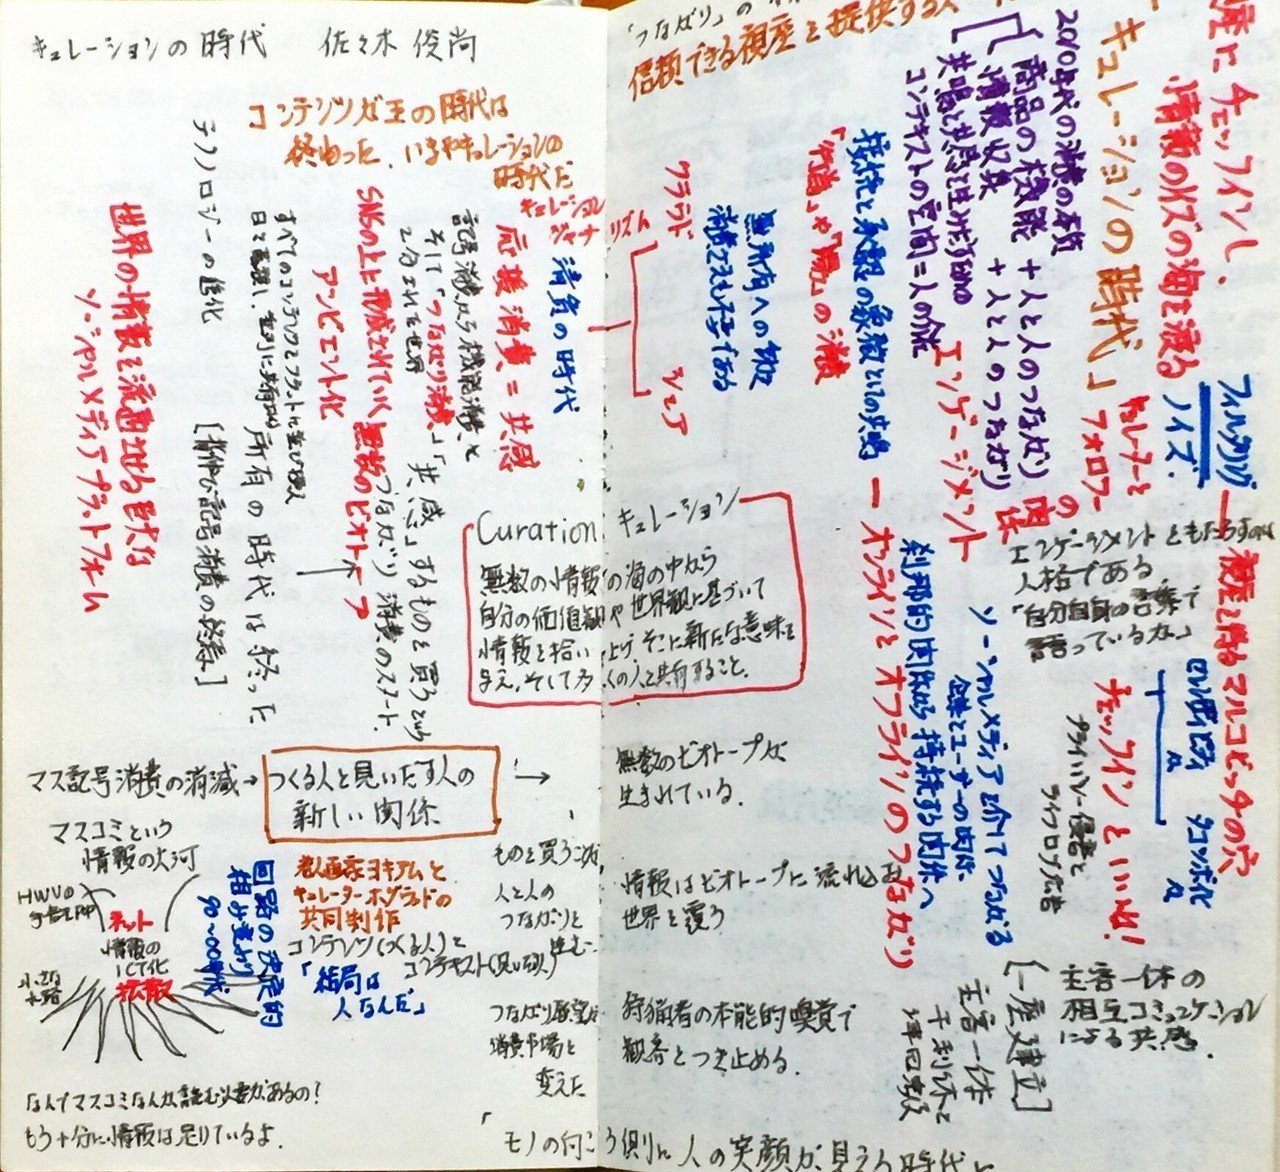 キュレーションの時代 佐々木 俊尚
コンテンツが王の時代は
終わった、いまやキュレーションの
時代だ
キュレーション
ジャーナリズム
テクノロジーの進化
世界の情報を流通させる巨大な
ソーシャルメディアプラットフォーム
すべてのコンテンツはフラットに
所有の時代は終った
アンビエント化
SNSの上に形成されていく無数のビオトープ
つながり消費のスタート
記号消費から機能消費と
そして「つながり消費」
2分された世界
「共感」するものを買うという
応援消費=共感
清貧の時代
クラウド
シェア
無所有への
「行為」や「場」の消費
接続と承認の象徴としての共鳴
Curation キュレーション
無数の情報の海の中から
自分の価値観や世界観に基づいて
情報を拾い上げそこに新たな意味を
与え、そして多くの人と共有すること。
マス記号消費の消滅→
つくる人と見いだす人の
新しい関係
→
無数のビオトープが
生まれている。
マスコミという
情報の大河
ネット
情報の
ICT化
拡散
小さな
水路
回路の決定的
組み変わり
90〜00年代
老画家ヨキアムと
キュレーターホグランドの
共同制作
コンテンツ(つくる人)と
コンテキスト(見い出す人)
「結局は
人なんだ」
ものを買うことが
人と人の
つながりを
生む
情報はビオトープに流れ込み
世界を覆う
つながり願望が
消費市場を
変えた
狩猟者の本能的嗅覚で
観客をつき止める。
なんでマスコミなんか読む必要があるの?
もう十分に情報は足りているよ。
「モノの向こう側に人の笑顔が見える時代に
信頼できる視座を提供する人
視座にチェックインし、
情報のノイズの海を渡る
「キュレーションの時代」
2000年代の消費の本質
商品の機能 +人と人のつながり
情報収集 +人と人のつながり
共鳴と共感を生み出すための
コンテキストの空間=人の介在
エンゲージメント
ー オンラインとオフラインのつながり
刹那的関係から持続する関係へ
ソーシャルメディアを介してつながる
企業とユーザーの関係
キュレーターと
フォロワー
の
関係
フィルタリング
ノイズ
エンゲージメントをもたらすのは
人格である。
「自分自身の言葉で
語っているか」
視座を得るマルコビッチの穴
チェックインといいね!
プライバシー侵害と
ライフログ広告
主客一体の
相互コミュニケーション
による共感。
[一座建立]
主客一体
千利休と